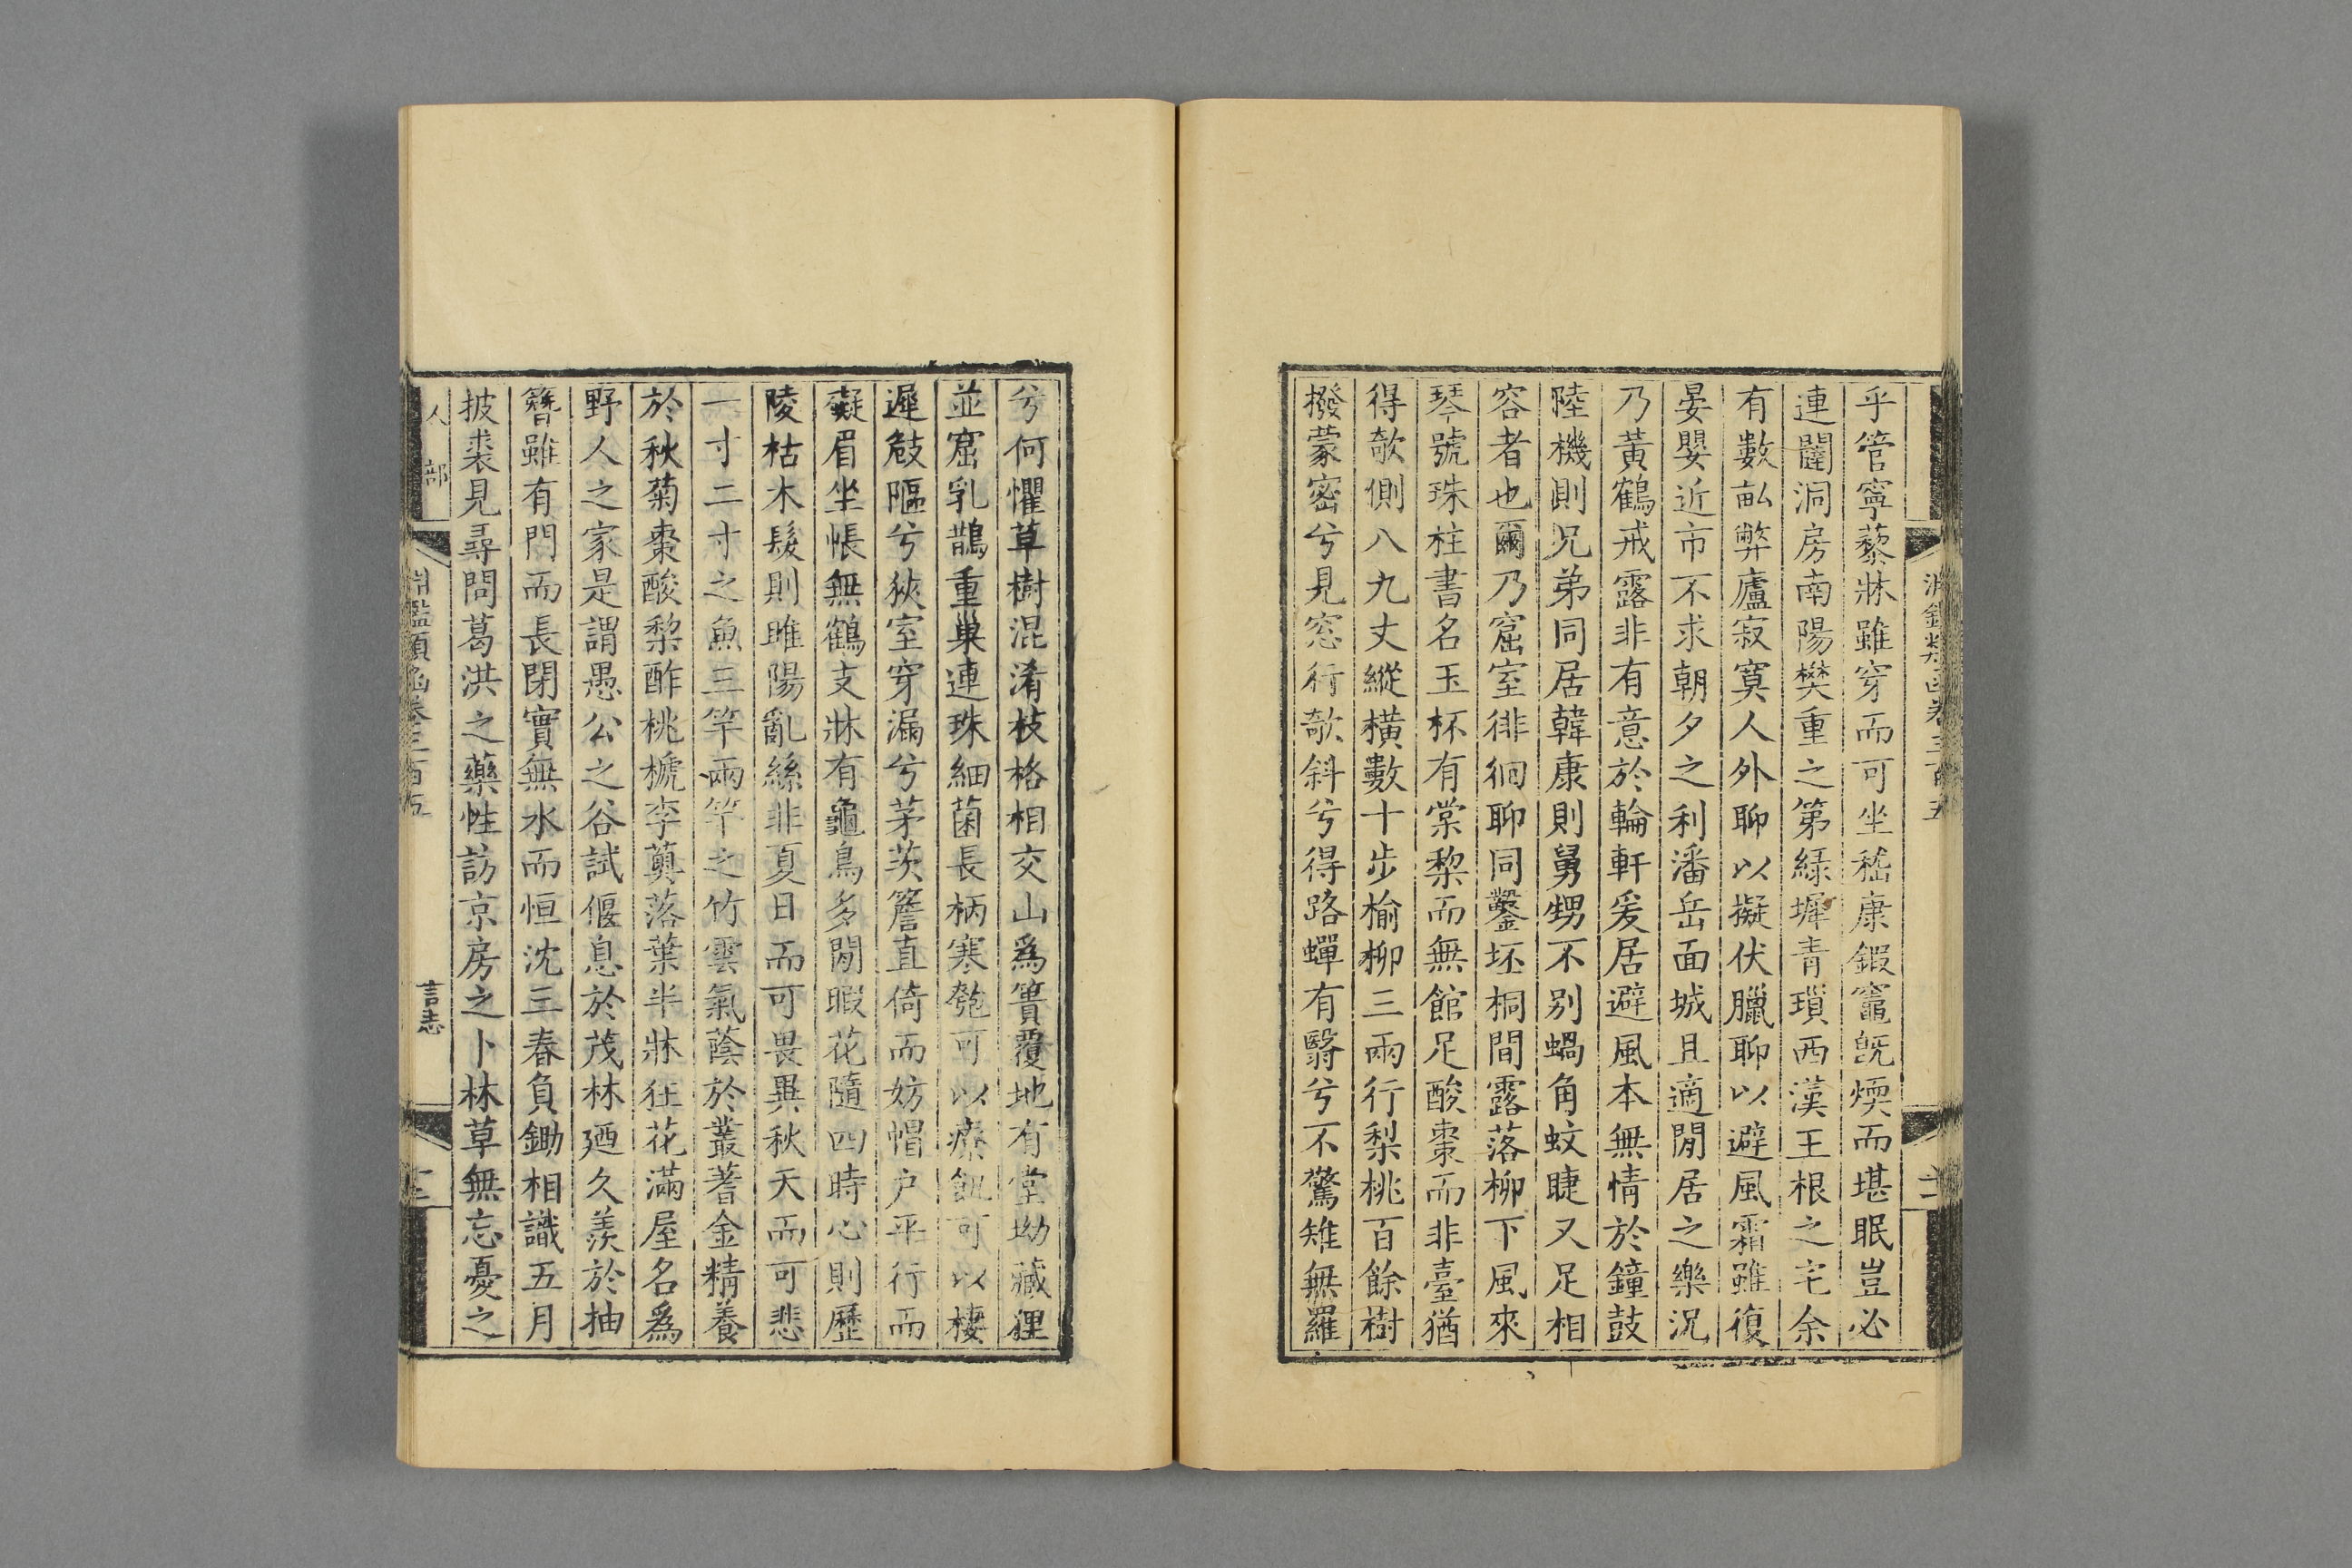 乎管寧藜牀雖穿而可坐嵇康鍜竈旣煗而堪眠豈必
連闥洞房南陽樊重之第綠墀青瑣西漢王根之宅余
有數畝弊廬寂寞人外聊以擬伏臘聊以避風霜雖復
晏嬰近市不求朝夕之利潘岳面城且適閒居之樂況
乃黃鶴戒露非有意於輪軒爰居避風本無情於鐘鼓
陸機則兄弟同居韓康則舅甥不别蝸角蚊睫又足相
容者也爾乃窟室徘徊聊同鑿坯桐間露落柳下風來
琴號珠柱書名玉杯有棠梨而無館足酸棗而非臺猶
得欹側八九丈縱橫數十步榆柳三兩行梨桃百餘樹
撥蒙密兮見窓行欹斜兮得路蟬有翳兮不驚雉無羅
兮何懼草樹混淆枝格相交山爲簣覆地有堂坳藏狸
並窟乳鵲重巢連珠細菌長柄寒匏可以療飢可以棲
遲㩻隔兮狹室穿漏兮茅茨簷直倚而妨帽户平行而
礙眉坐帳無鶴支牀有龜鳥多閒暇花隨四時心則歷
陵枯木髮則睢陽亂絲非夏日而可畏異秋天而可悲
一寸二寸之魚三竿兩竿之竹雲氣蔭於叢蓍金精養
於秋菊棗酸梨酢桃榹李薁落葉半牀狂花滿屋名爲
野人之家是謂愚公之谷試偃息於茂林廼久羨於抽
簪雖有門而長閉實無水而恒沈三春負鋤相識五月
披裘見尋問葛洪之藥性訪京房之卜林草無忘憂之
人部
淵鑑類函卷三百五
言志